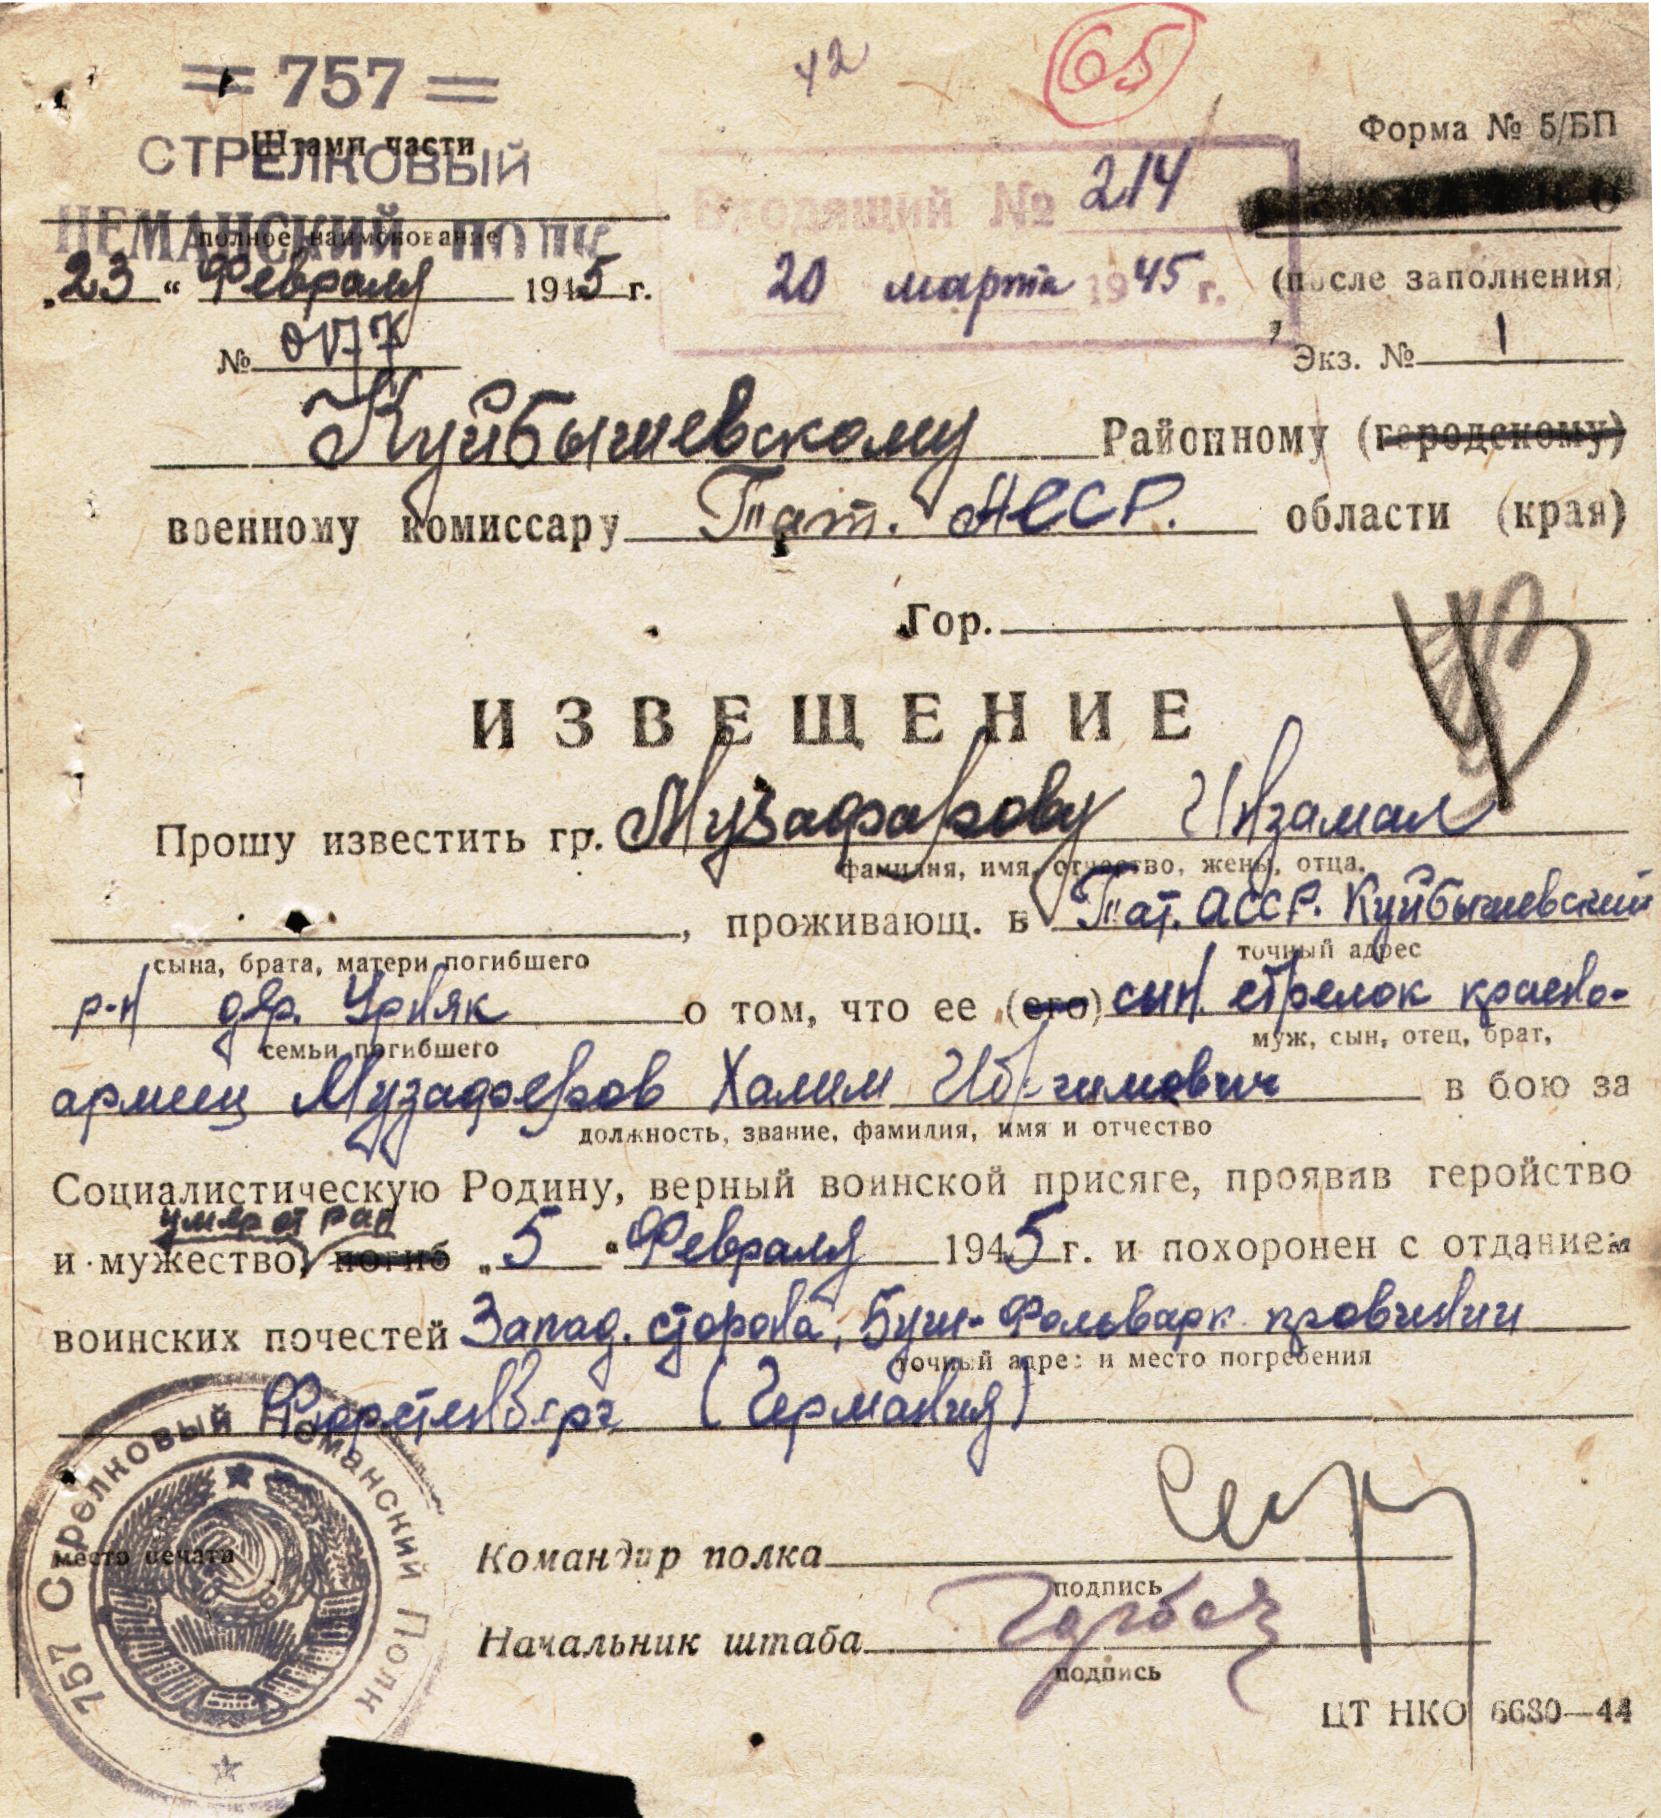 = 757 =
42
65
Штамп части
СТРЕЛКОВЫЙ
Форма № 5/БП
НЕМАНСКИЙ ПОЛК
полное наименование
Входящий № 214
„23“ Февраля 1945 г.
20 марта 1945 г.
(после заполнения)
№ 0177
Экз. № 1
Куйбышевскому Районному (городскому)
военному комиссару Тат. АССР. области (края)
Гор.
ИЗВЕЩЕНИЕ
Прошу известить гр. Музафарову Инзамал
фамилия, имя, отчество, жены, отца,
, проживающ. в Тат. АССР. Куйбышевский
сына, брата, матери погибшего
точный адрес
р-н дер. Урняк о том, что ее (его) сын. стрелок красно-
семьи погибшего
муж, сын, отец, брат,
армеец Музафаров Халим Ибрагимович в бою за
должность, звание, фамилия, имя и отчество
Социалистическую Родину, верный воинской присяге, проявив геройство
умер от ран
и мужество, погиб „5“ Февраля 1945 г. и похоронен с отданием
воинских почестей Запад. сторона, Буш-Фольварк провинции
точный адрес и место погребения
Фюрстенберг (Германия)
757 Стрелковый Неманский Полк
место печати
Командир полка
подпись
Начальник штаба
подпись
ЦТ НКО 6680—44